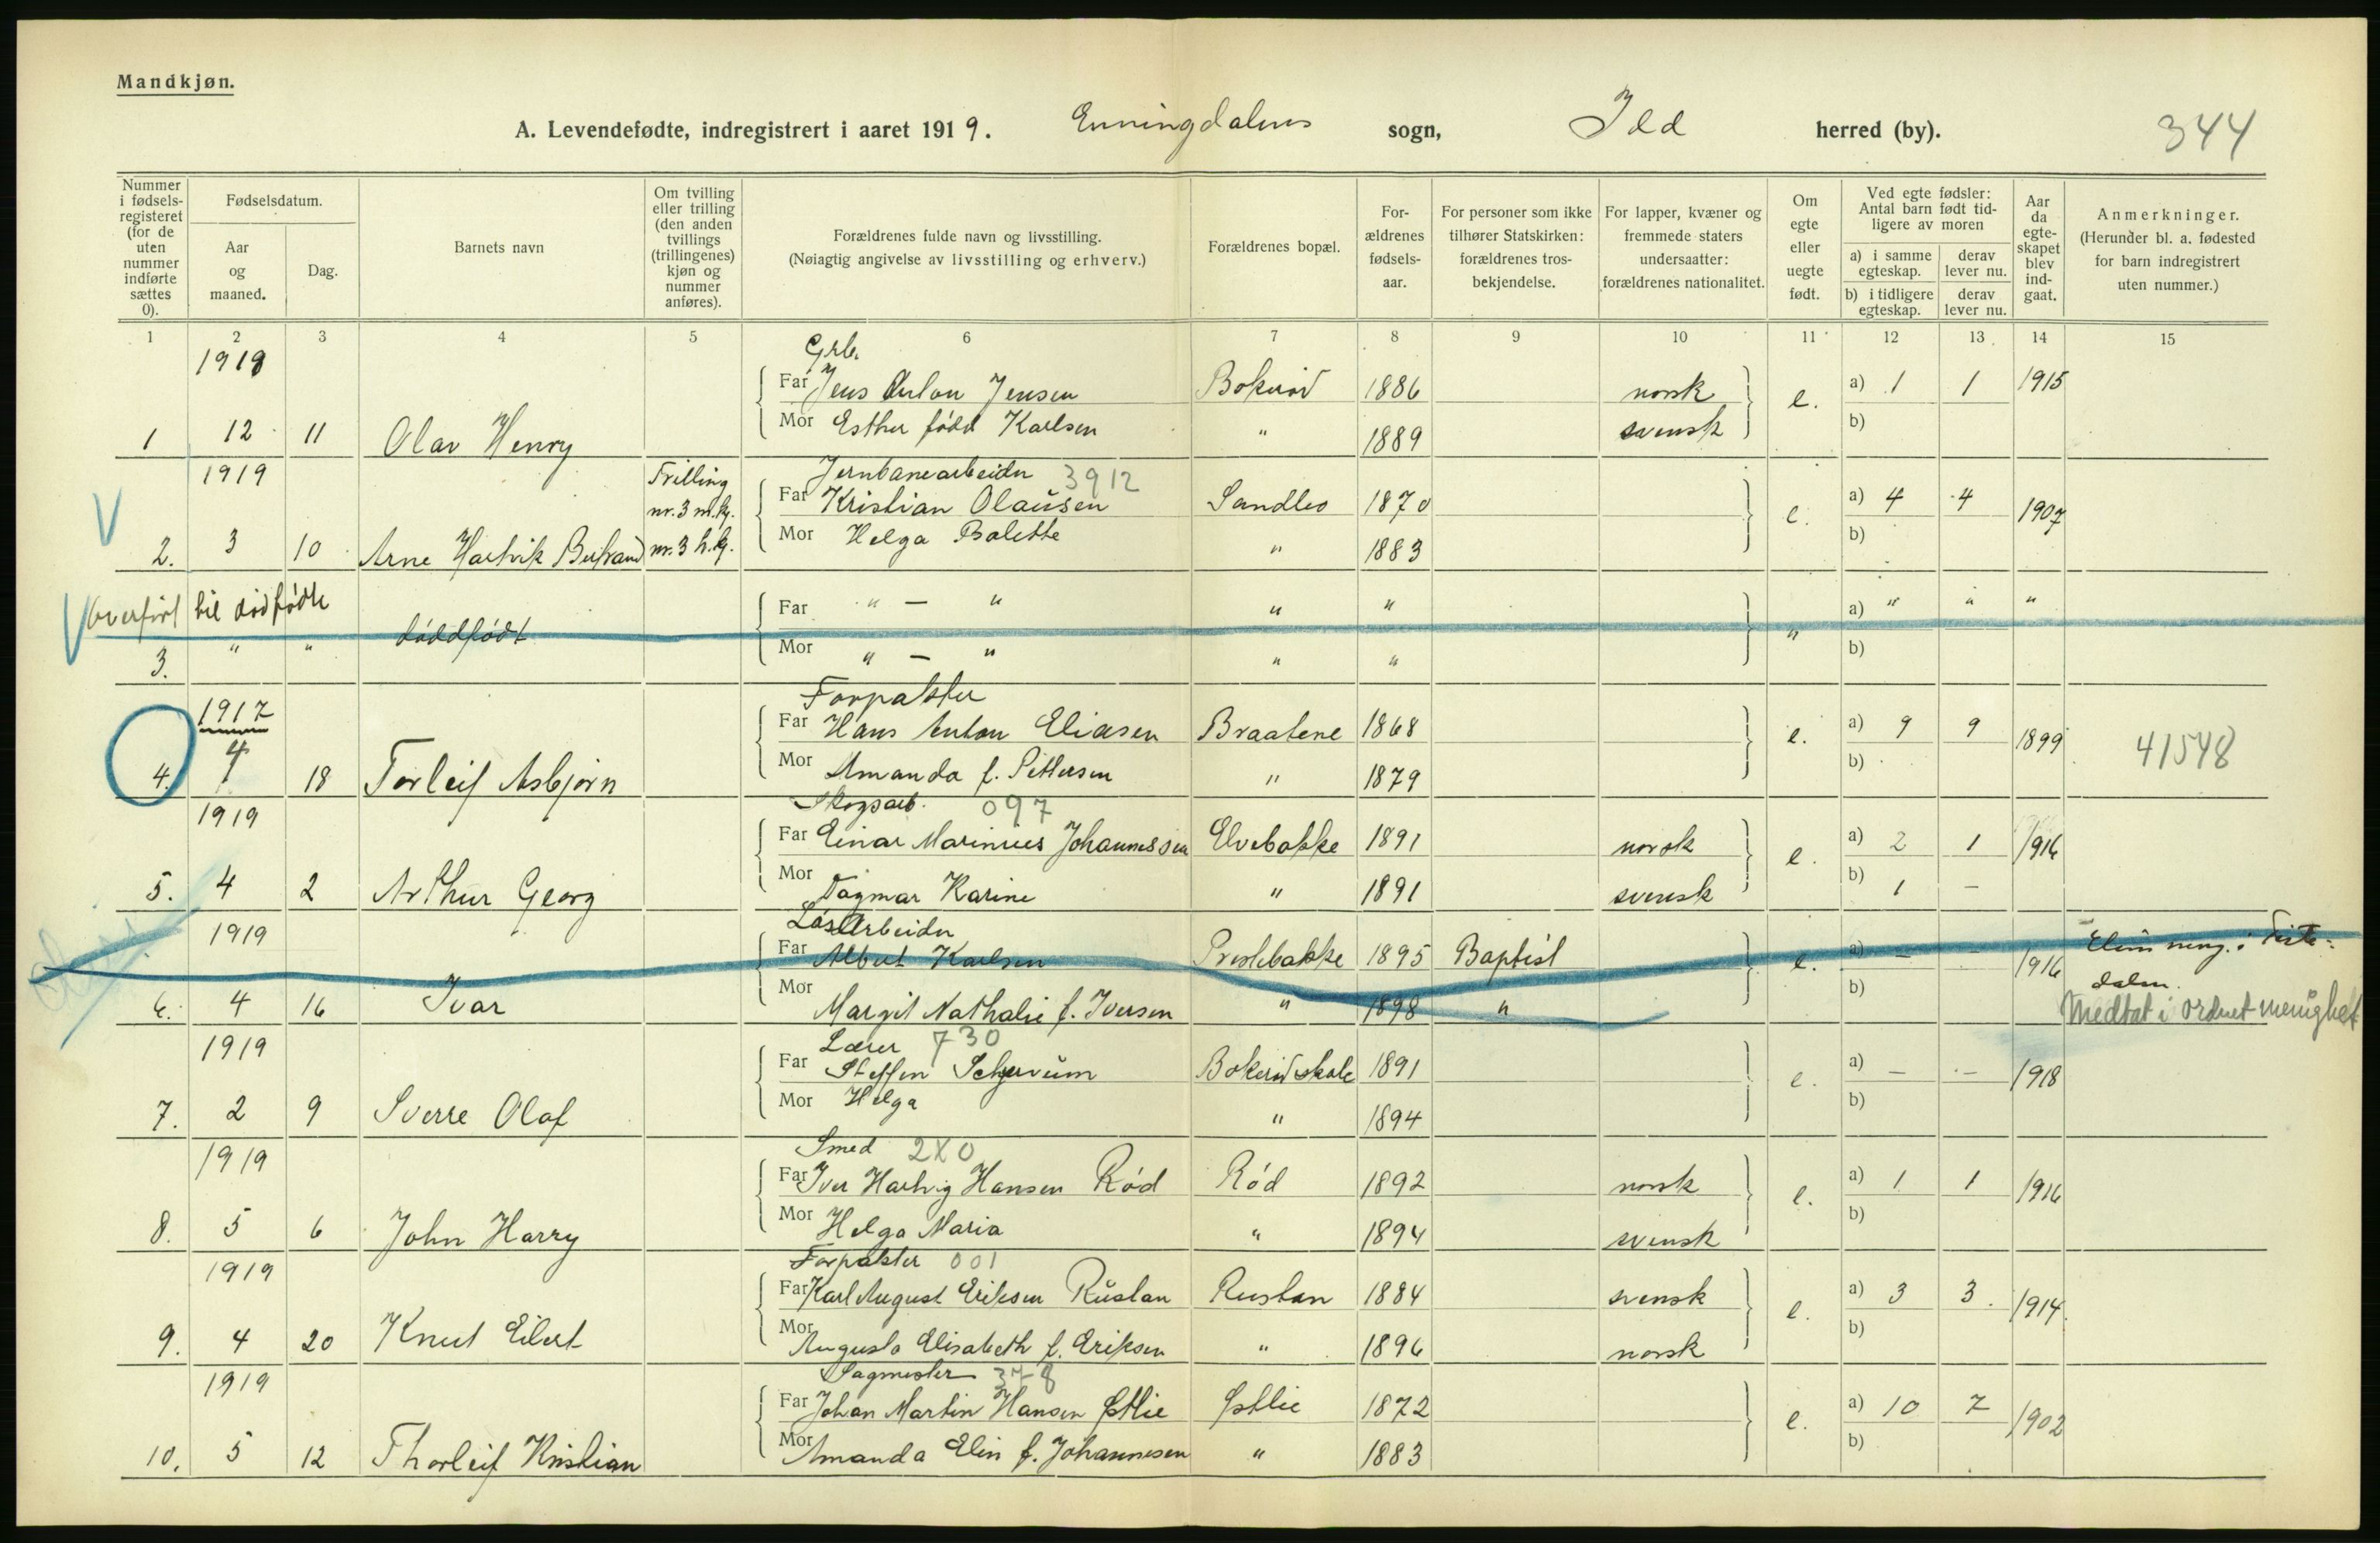 Mandkjøn.
A. Levendefødte, indregistrert i aaret 1919. Enningdalens sogn, Idd herred (by). 344
Nummer i fødselsregisteret (for de uten nummer indførte sættes 0).
Fødselsdatum.
Aar og maaned.
Dag.
Barnets navn
Om tvilling eller trilling (den anden tvillings (trillingenes) kjøn og nummer anføres).
Forældrenes fulde navn og livsstilling.
(Nøiagtig angivelse av livsstilling og erhverv.)
Forældrenes bopæl.
Forældrenes fødselsaar.
For personer som ikke tilhører Statskirken: forældrenes trosbekjendelse.
For lapper, kvæner og fremmede staters undersaatter: forældrenes nationalitet.
Om egte eller uegte født.
Ved egte fødsler: Antal barn født tidligere av moren
a) i samme egteskap. derav lever nu.
b) i tidligere egteskap. derav lever nu.
Aar da egteskapet blev indgaat.
Anmerkninger.
(Herunder bl. a. fødested for barn indregistrert uten nummer.)
1 2 3 4 5 6 7 8 9 10 11 12 13 14 15
1918 Grb.
Far Jens Anton Jensen Bokerød 1886 norsk e. a) 1 1 1915
1 12 11 Olav Henry Mor Esther född Karlsen " 1889 svensk b)
1919 Trilling Jernbanearbeider 3912
nr. 3 m.kj. Far Kristian Olausen Sandleo 1870 e. a) 4 4 1907
2. 3 10 Arne Hartvik Bertrand nr. 3 h.kj. Mor Helga Bolette " 1883 b)
overført til dødfødte Far " — " " " " a) " " "
3. " " døddfødt Mor " — " " " b)
1917 Forpakter
Far Hans Anton Eliasen Braatene 1868 e. a) 9 9 1899 41548
4. 4 18 Torleif Asbjørn Mor Amanda f. Pettersen " 1879 b)
1919 Skogsarb. 097
Far Einar Marinius Johannessen Elvebakke 1891 norsk e. a) 2 1 1916
5. 4 2 Arthur Georg Mor Dagmar Karine " 1891 svensk b) 1 –
1919 Løsarbeider
Far Albert Karlsen Prestebakke 1895 Baptist e. a) – – 1916 Elim meng. i Tistedalen.
6. 4 16 Ivar Mor Margit Nathalie f. Iversen " 1898 " b) Medtat i ordnet menighet
1919 Lærer 730
Far Steffen Schjervum Bokerød skole 1891 e. a) – – 1918
7. 2 9 Sverre Olaf Mor Helga " 1894 b)
1919 Smed 2X0
Far Iver Hartvig Hansen Rød Rød 1892 norsk e. a) 1 1 1916
8. 5 6 John Harry Mor Helga Maria " 1894 svensk b)
1919 Forpakter 001
Far Karl August Eriksen Rustan Rustan 1884 svensk e. a) 3 3. 1914
9. 4 20 Knut Eilert Mor Augusta Elisabeth f. Eriksen " 1896 norsk b)
1919 Sagmester 378
Far Johan Martin Hansen Østlie Østlie 1872 e. a) 10 7 1902
10. 5 12 Thorleif Kristian Mor Amanda Elin f. Johannesen " 1883 b)